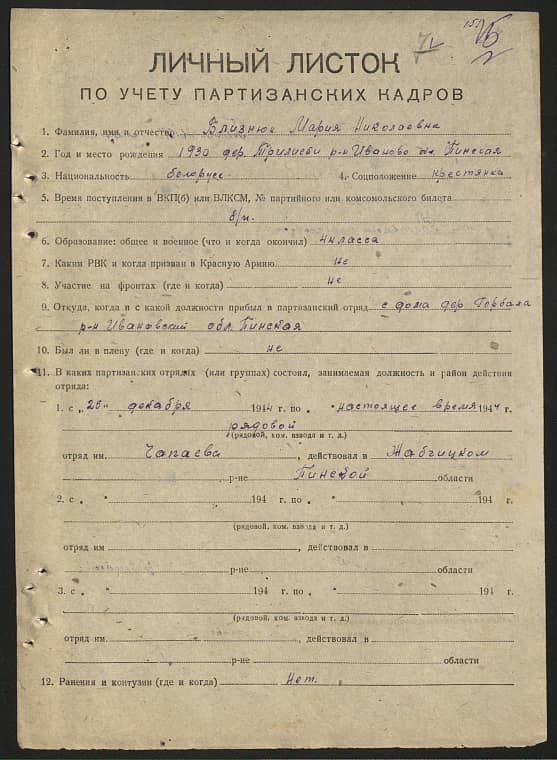 ЛИЧНЫЙ ЛИСТОК
ПО УЧЕТУ ПАРТИЗАНСКИХ КАДРОВ
1. Фамилия, имя и отчество Близнюк Мария Николаевна
2. Год и место рождения 1930 дер. р-н Иваново Пинская
3. Национальность белорусс 4. Соцположение крестянка
5. Время поступления в ВКП(б) или ВЛКСМ, № партийного или комсомольского билета
б/п.
6. Образование: общее и военное (что и когда окончил) 4 класса
7. Каким РВК и когда призван в Красную Армию не
8. Участие на фронтах (где и когда) не
9. Откуда, когда и с какой должности прибыл в партизанский отряд с дома дер. Горбаха
р-н Ивановский обл. Пинская
10. Был ли в плену (где и когда) не
11. В каких партизанских отрядах (или группах) состоял, занимаемая должность и район действия
отряда:
1. с „25" декабря 1944 г. по " настоящее время 1944 г.
рядовой
(рядовой, ком. взвода и т. д.)
отряд им. Чапаева, действовал в Жабчицком
, р-не Пинской области
2. с „ " 194 г. по „ " 194 г.
(рядовой, ком. взвода и т. д.)
отряд им , действовал в
р-не области
3. с „ " 194 г. по „ " 194 г.
(рядовой, ком. взвода и т. д.)
отряд им. , действовал в
р-не области
12. Ранения и контузии (где и когда) Нет.